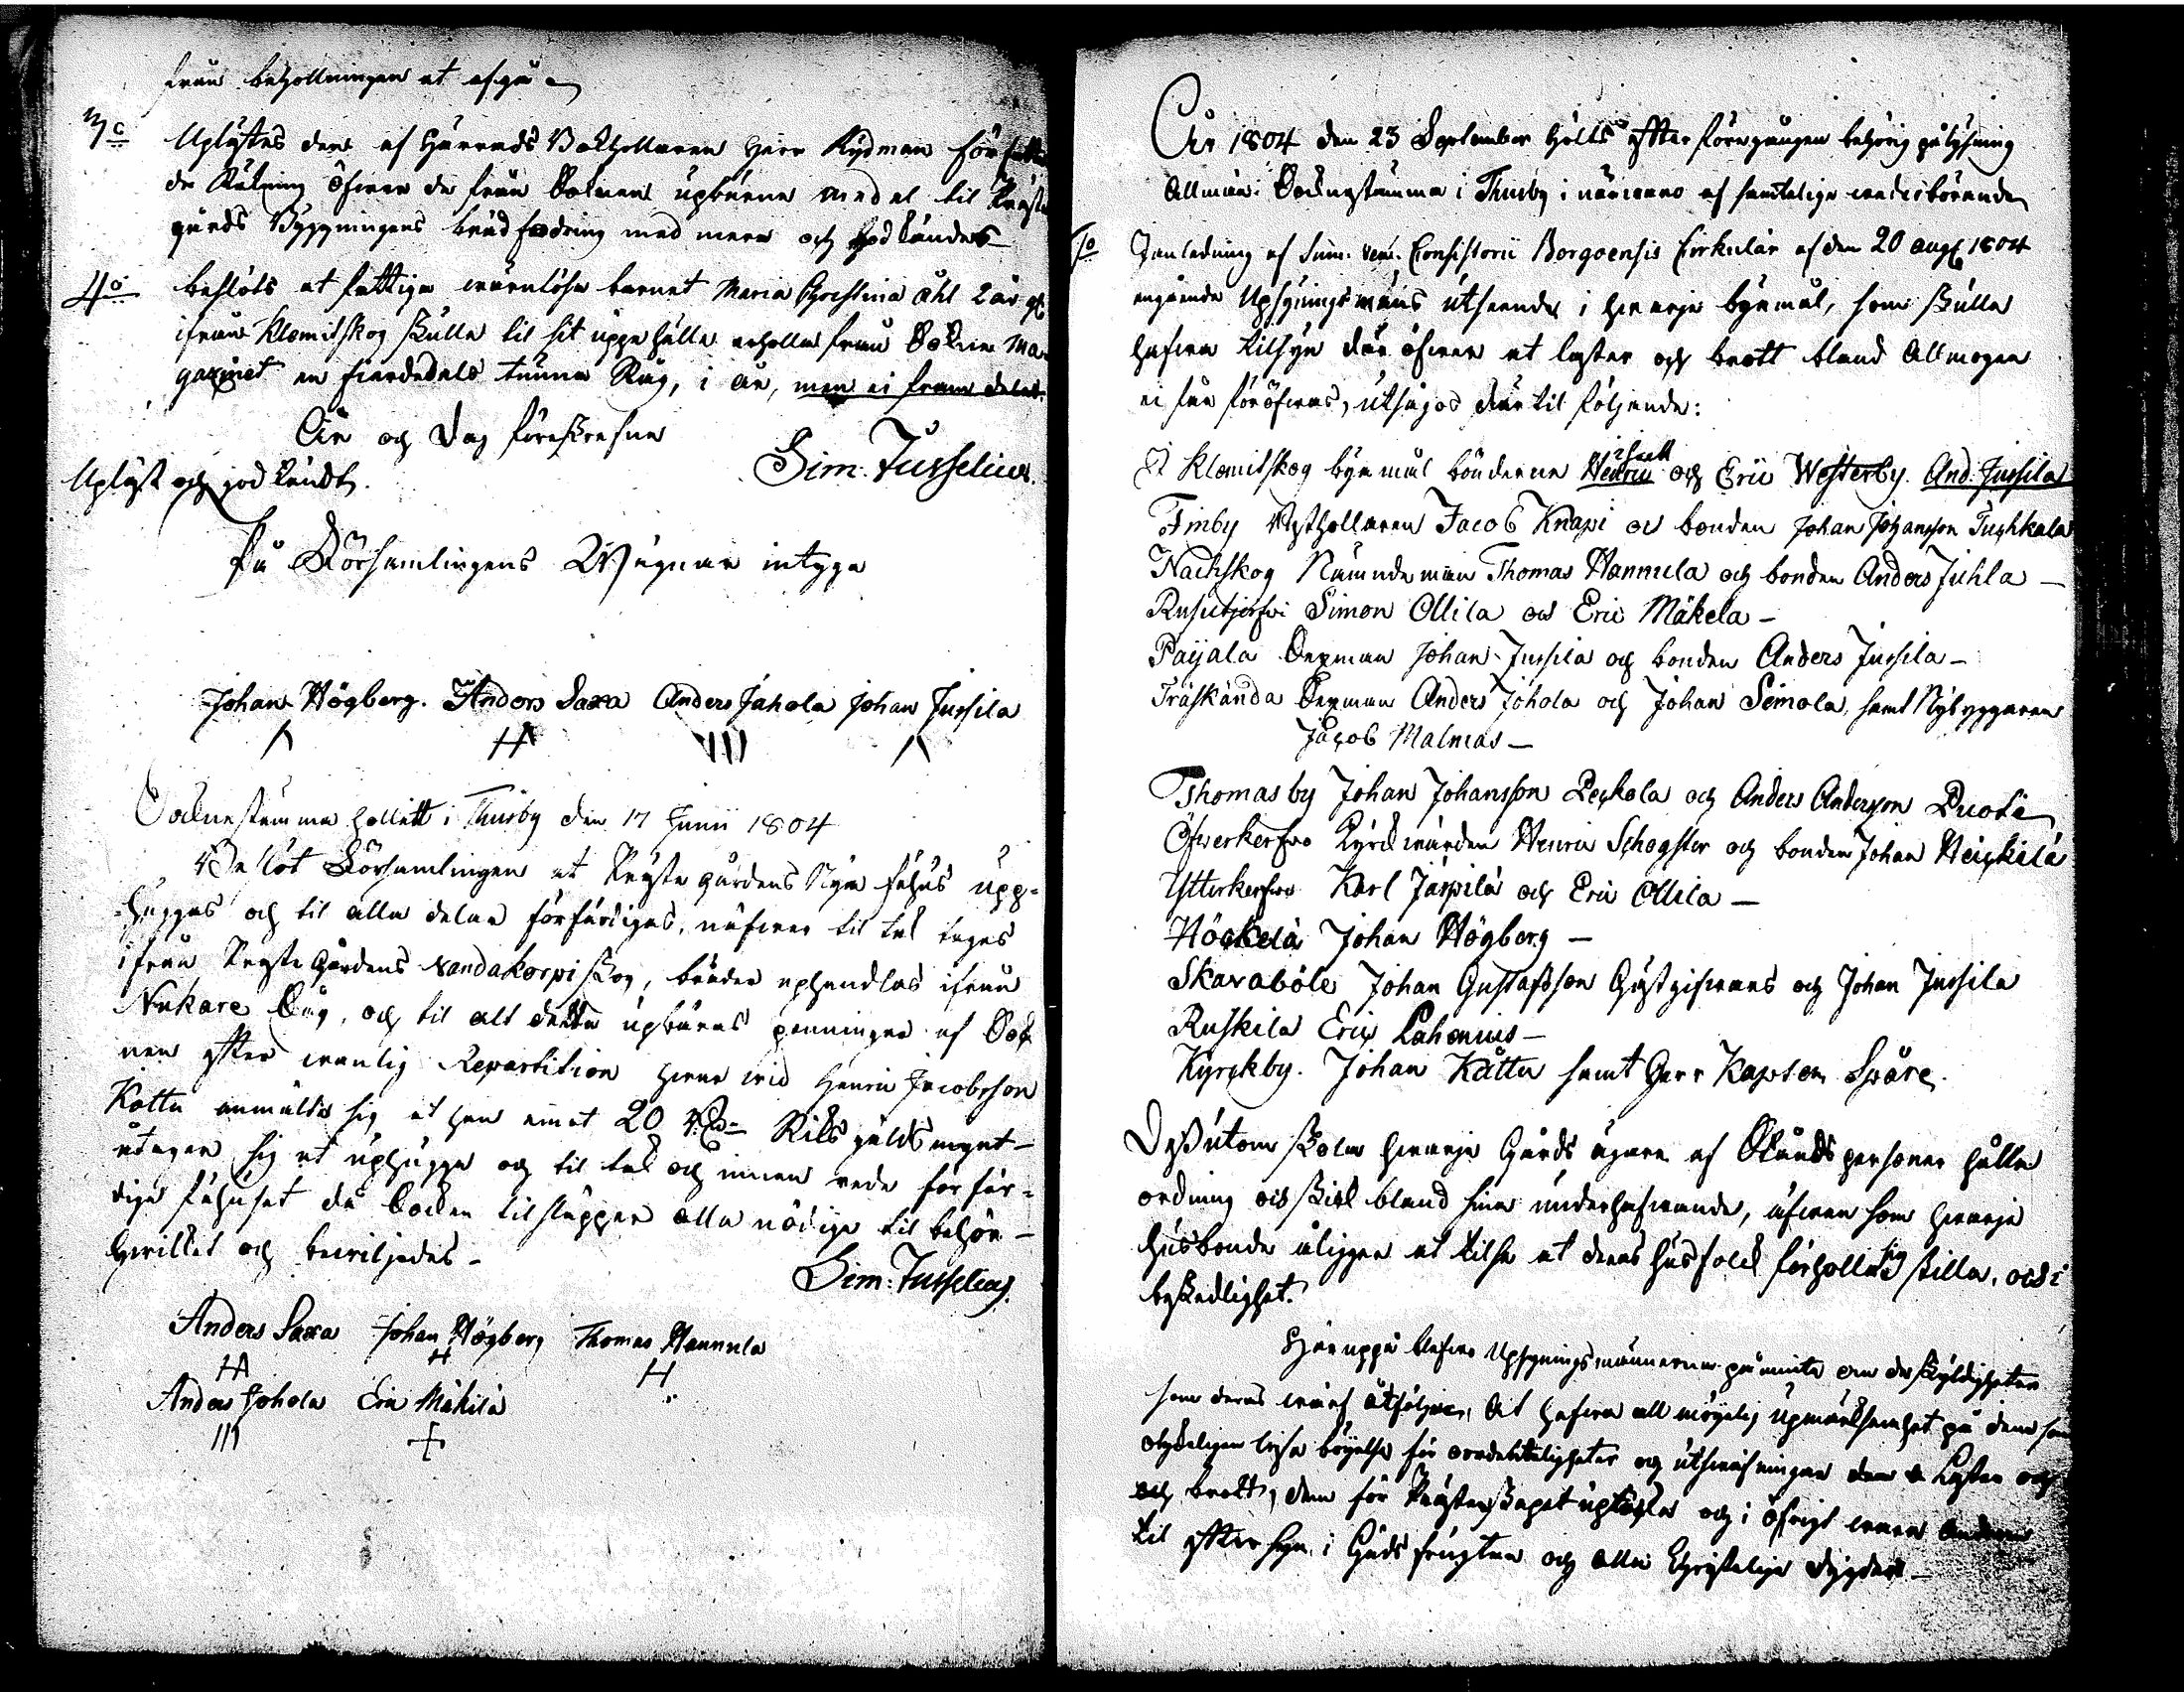 från behollningen at afgå
3o Uplästes den af Härrads Bokhollaren Herr Rydman författa
de Räkning öfwer de från Soknen upburne medel til Präste
gårds Byggningens brädfodring med mera och godkändes
4o beslöts at fattiga wärnlösa barnet Maria Christina Åhl 2 år gl
ifrån Klemetskog skulle til sit uppehälle erholla från Sokne Ma-
gazinet en fierdedels tunna Råg, i år, men ei framdeles.
År og Dag föreskrefne
Sim: Jusselius.
Upläst och godkändt.
På Församlingens Wägnar intyga
Johan Högberg. Anders Saxa Anders Johola Johan Jussila
Soknestämma hollett i Thusby den 17 Junii 1804
Beslöt Församlingen at Prästegårdens Nya fähus upp-
hugges och til alla delar förfärdigas, näfwer til tak tages
ifrån Prästegårdens Nandakorpi skog, bräder uphandlas ifrån
Nukare Såg, och til alt detta upbäres penninger af Sok
nen efter wanlig Repartition hwarwid Henric Jacobsson
Kåttu anmälte sig at han emot 20 RD Riksgäldsmynt
utager sig at uphugga og til tak och innanrede förfär-
diga fähuset då Socken tilsläpper alla nödiga til behör
hwilket och bewiljades -
Sim: Jusselius.
Anders Saxa Johan Högberg Thomas Hannula
Anders Johola Eric Mäkilä
År 1804 den 23 September hölts efter föregången behörig pålysning
Allmän Soknestämma i Thusby i närwaro af samtelige wederbörande
1o I anledning af Sum. ven. Consistorii Borgoensis Cirkulär af den 20 Augt 1804
angående Upsyningsmäns utseende i hwarje byamål, som skulle
hafwa tilsyn där öfwer at laster och brott bland Allmogen
ei får föröfwas, utsågos där til följande:
I Klemetskog byamål bönderne Henric och Eric Westerby. And: Jussila
Finby Rusthollaren Jacob Knapi och bonden Johan Johansson Tuchkala
Nackskog Nämndeman Thomas Hannula och bonden Anders Juhla -
Rusutjerfwi Simon Ollila och Eric Mäkela -
Paijala Sexman Johan Jussila och bonden Anders Jussila -
Träskända Sexman Anders Johola och Johan Seimola, samt Nybyggaren
Jacob Malmas -
Thomasby Johan Johansson Peckola och Anders Andersson Puoti
Öfwerkerfwo Kyrckwärden Henric Schogster och bonden Johan Heickilä
Ytterkerfwo Karl Järpilä och Eric Ollila -
Höckelä Johan Högberg -
Skavaböle Johan Gustafsson Gästgifwars och Johan Jussila
Ruskila Eric Lahonius -
Kyrckby. Johan Kåttu samt Herr Kapten Spåre.
Dessutom skola hwarje Gårds ägare af Ståndspersoner hålla
ordning och skick bland sina underhafwande, äfwen som hwarje
husbonde åligger at tilse at deras husfolck förholla sig stilla, och i
beskedlighet.
Häruppå blefwo Upsyningsmännerne påminte om de skyldigheter
som deras wärf åtföljer, at hafwa all möjelig upmärksamhet på dem som
olyckeligen wisa böjelse för oredentligheter og utswäfningar den de Laster och
och brott, dem för Prästerskapet uptäcka och i öfrigt wara androm
til eftersyn i Gudsfrugtan och alla Christeliga dygder -